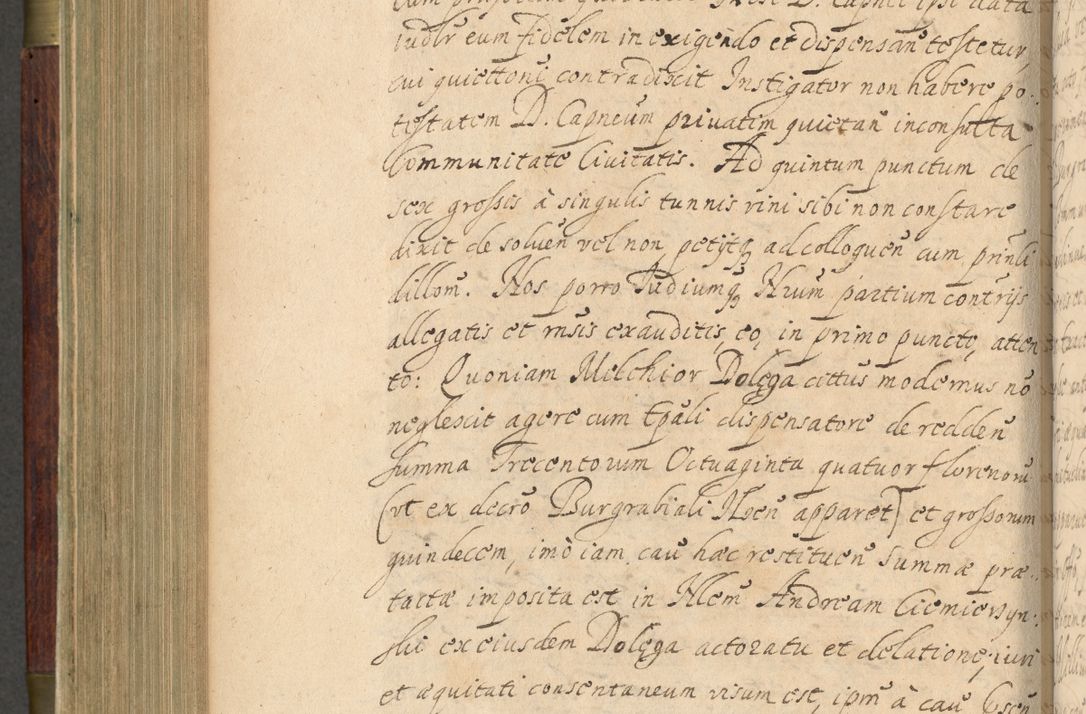 iudĩr eum fidelem in exigendo et dispensañ testetur,
cui quiettoni contradixit Instigator non habere po-
testatem D. Capneum priuatim quietañ inconsulta
Communitate Ciuitatis. Ad quintum punctum de
sex grossis à singulis tunnis vini sibi non constare
dixit de solueñ vel non petijtq̃ ad colloqueñ cum prinli
dillom̃. Nos porro Iudiumq̃ Hrum partium contrijs
allegatis et rnsis exauditis, eo, in primo puncto, atten
to: Quoniam Melchior Dolęga cittus modernus nõ
neglexit agere cum Epali dispensatore de reddeñ
summa Trecentorum Octuaginta quatuor florenorũ
(vt ex decrõ Burgrabiali Noeñ apparet) et grossorum
quindecem, imò iam cau̇ hæc restitueñ summæ præ-
tactæ imposita est in Nlem̃ Andream Ciemiersyn-
ski ex eiusdem Dolęga actoratu et delatione; iuri
et æquitati consentaneum visum est, ipm̃ à cau̇